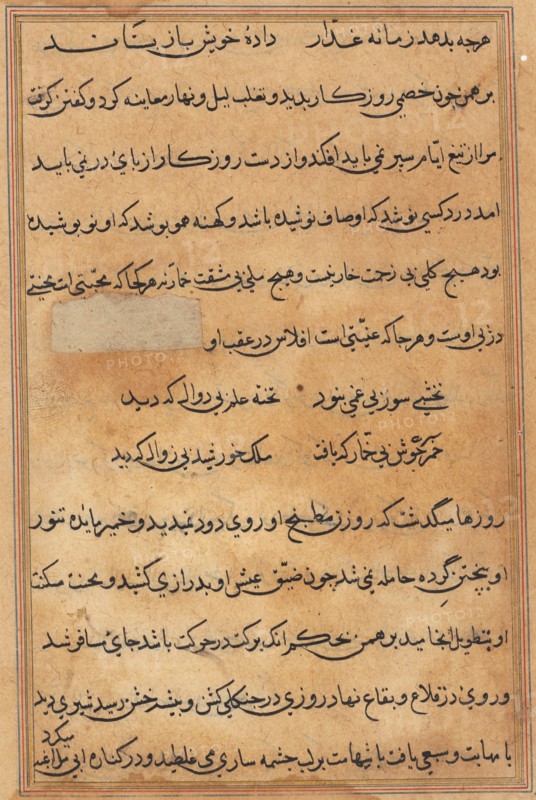 هرچه بدهد زمانه غدّار دادهٔ خویش باز بستاند
برهمن چون خصی روزکار بدید و تقلب لیل و نهار معاینه کرد و کفتن کرفت
مرا از تیغ ایّام سپر نمی باید افکند و از دست روزکار از پای در نمی باید
امد درد کسی نوشد که او صاف نوشیده باشد و کهنه همو پوشد که او نو پوشیده
بود هیچ کلی بی زحمت خار نیست و هیچ ملی بی مشقت خمار نه هر کجا که محبّتی است محنتی
در پی اوست و هر جا که غنیّتی است افلاس در عقب او
نخشبی سوز بی غمی نبود تخته علم بی زوال که دید
خمر خوش بی خمار که یافت ملک خورشید بی زوال که دید
روزها میگذشت که روزن مطبخ او روی دود ندید و خمیر مایده تنور
او بپختن گرده حامله نمی شد چون ضیّق عیش او بدرازی کشید و محنت مسکنت
او بتطویل انجامید برهمن بحکم انک برکت در حرکت باشد جای مسافر شد
و روی در قلاع و بقاع نهاد روزی در جنکلی کشن و بیشه خشن رسید شیری دید
با مهابت و سبعی یافت با شهامت بر لب چشمه ساری می غلطید و در کناره ابی مراغه
میکرد